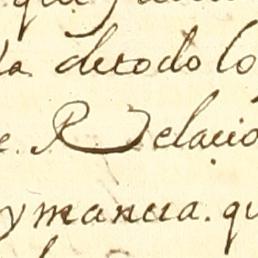 da detodo lo
e. Relacio
y manera. qu